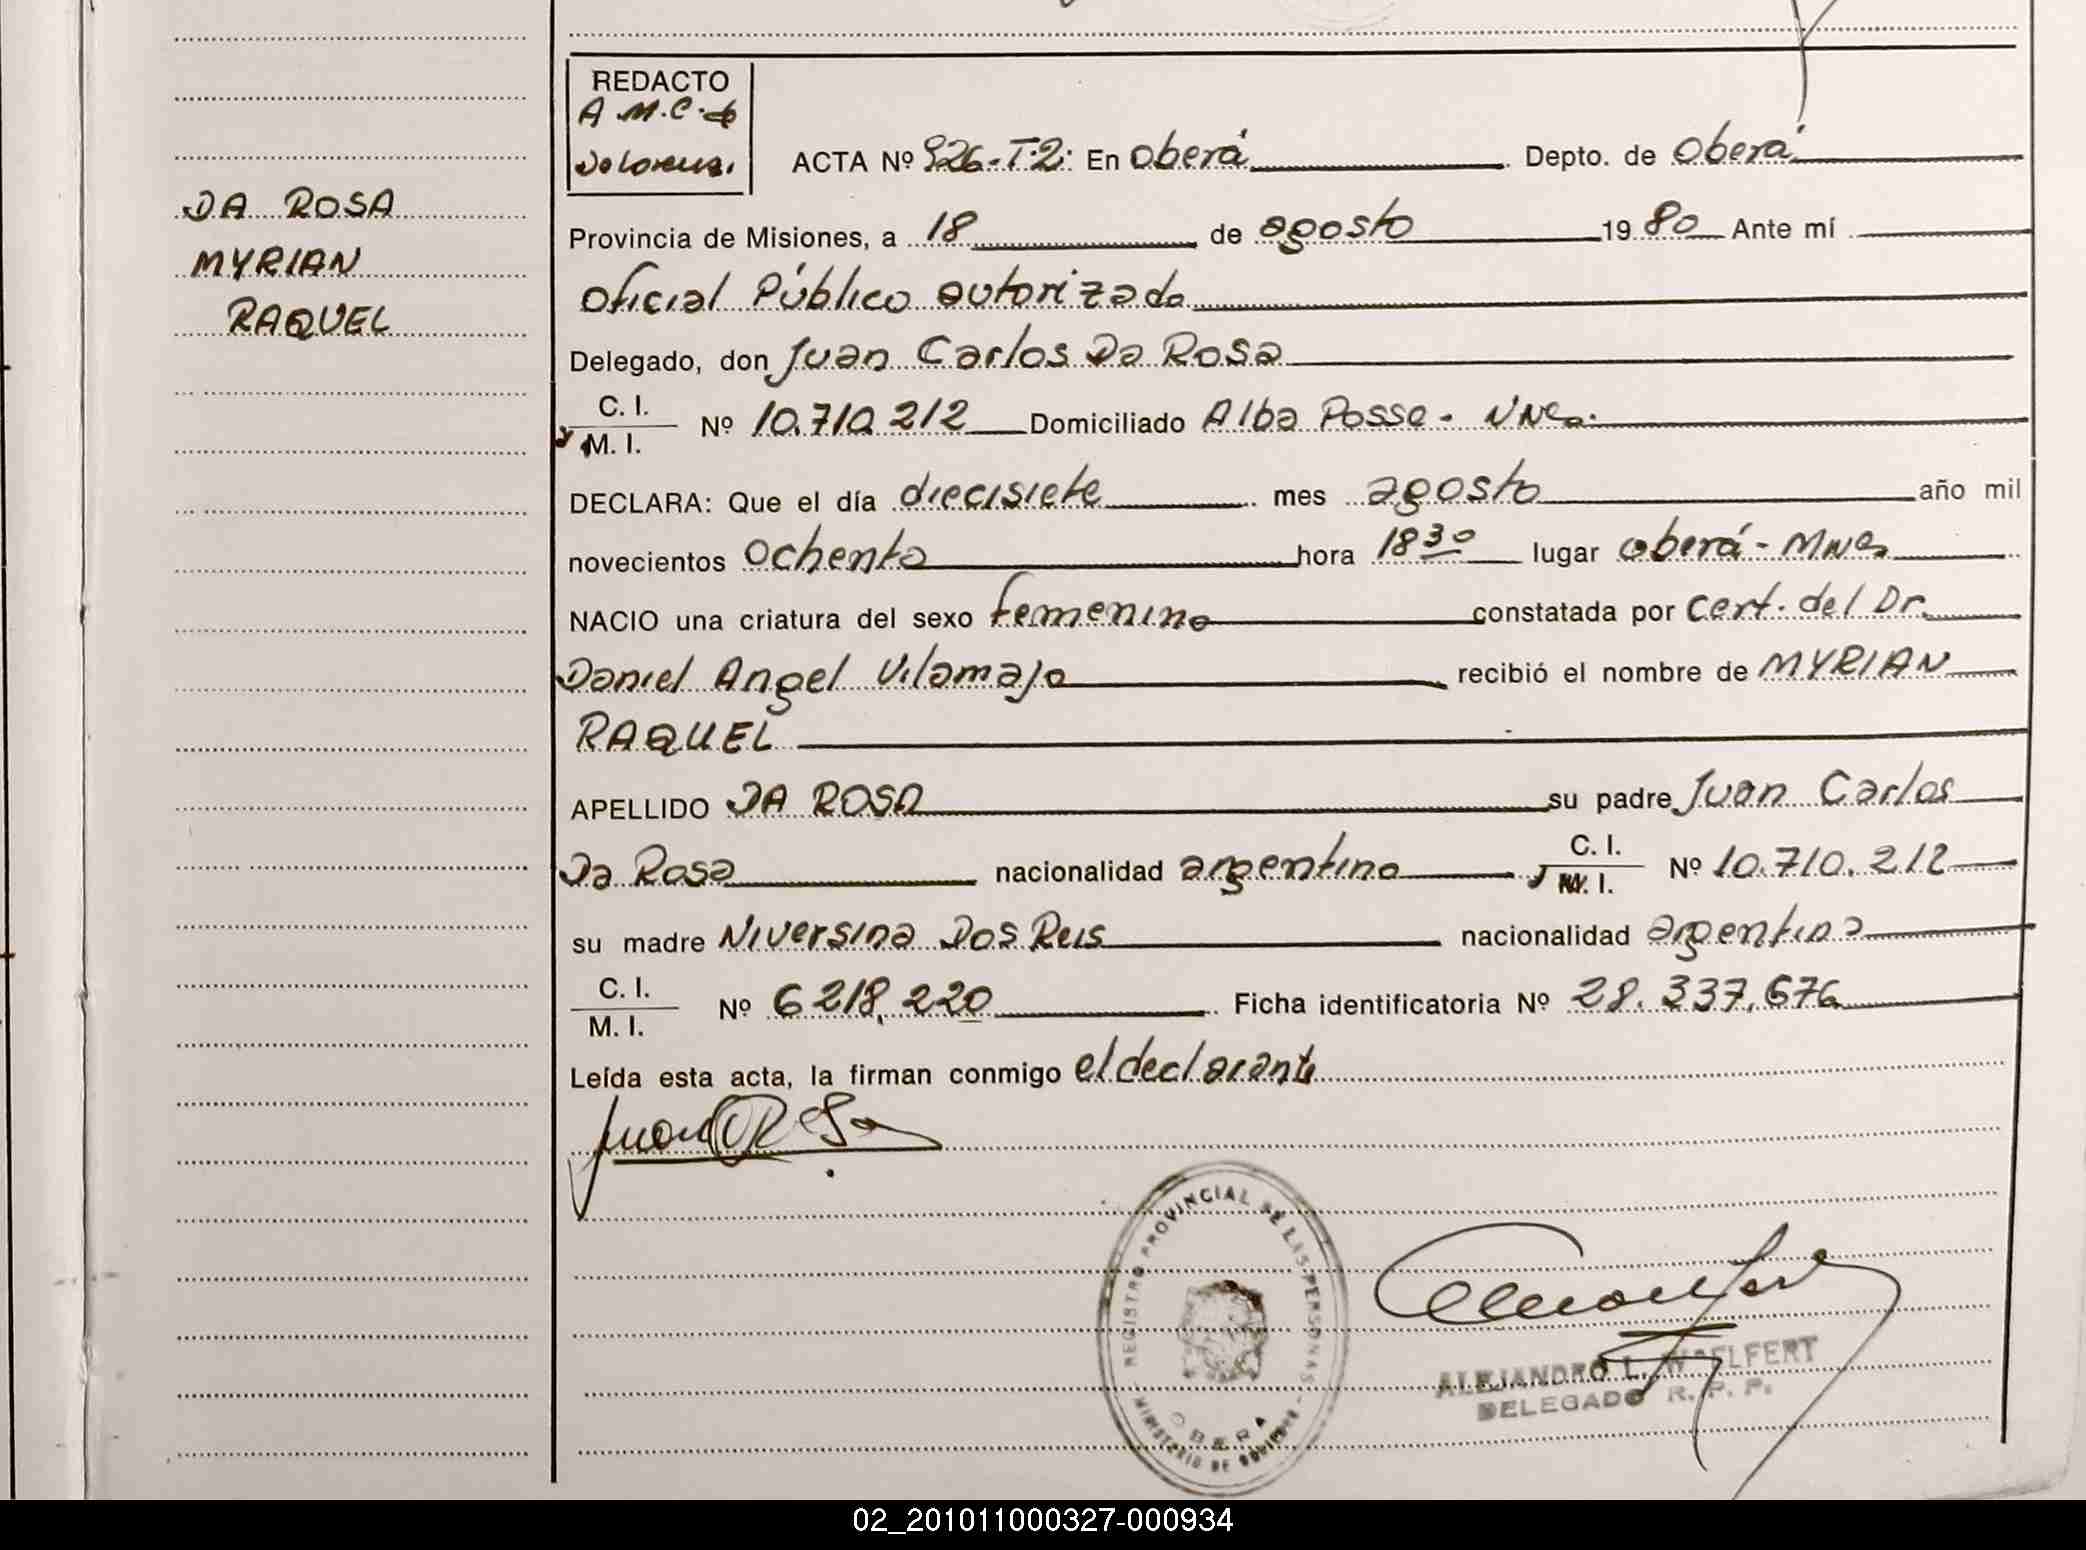 DA ROSA
MYRIAN
RAQUEL
REDACTO
A.M.C. de
ACTA Nº 926-T:2: En Oberá Depto. de Oberá
Provincia de Misiones, a 18 de agosto 1980 Ante mí
Oficial Público autorizado
Delegado, don Juan Carlos Da Rosa
C. I.
M. I. Nº 10.710.212 Domiciliado Alba Posse - Mnes.
DECLARA: Que el día diecisiete mes agosto año mil
novecientos Ochenta hora 18 30 lugar Oberá - Mnes
NACIO una criatura del sexo femenino constatada por Cert. del Dr.
Daniel Angel Vilamajo recibió el nombre de MYRIAN
RAQUEL
APELLIDO DA ROSA su padre Juan Carlos
Da Rosa nacionalidad argentino C. I. M. I. Nº 10.710.212
su madre Niversina Dos Reis nacionalidad argentina
C. I.
M. I. Nº 6 218,220 Ficha identificatoria Nº 28.337.676
Leída esta acta, la firman conmigo el declarante
REGISTRO PROVINCIAL DE LAS PERSONAS
OBERA
MINISTERIO DE GOBIERNO
ALEJANDRO L. WOELFERT
DELEGADO R. P. P.
02_201011000327-000934